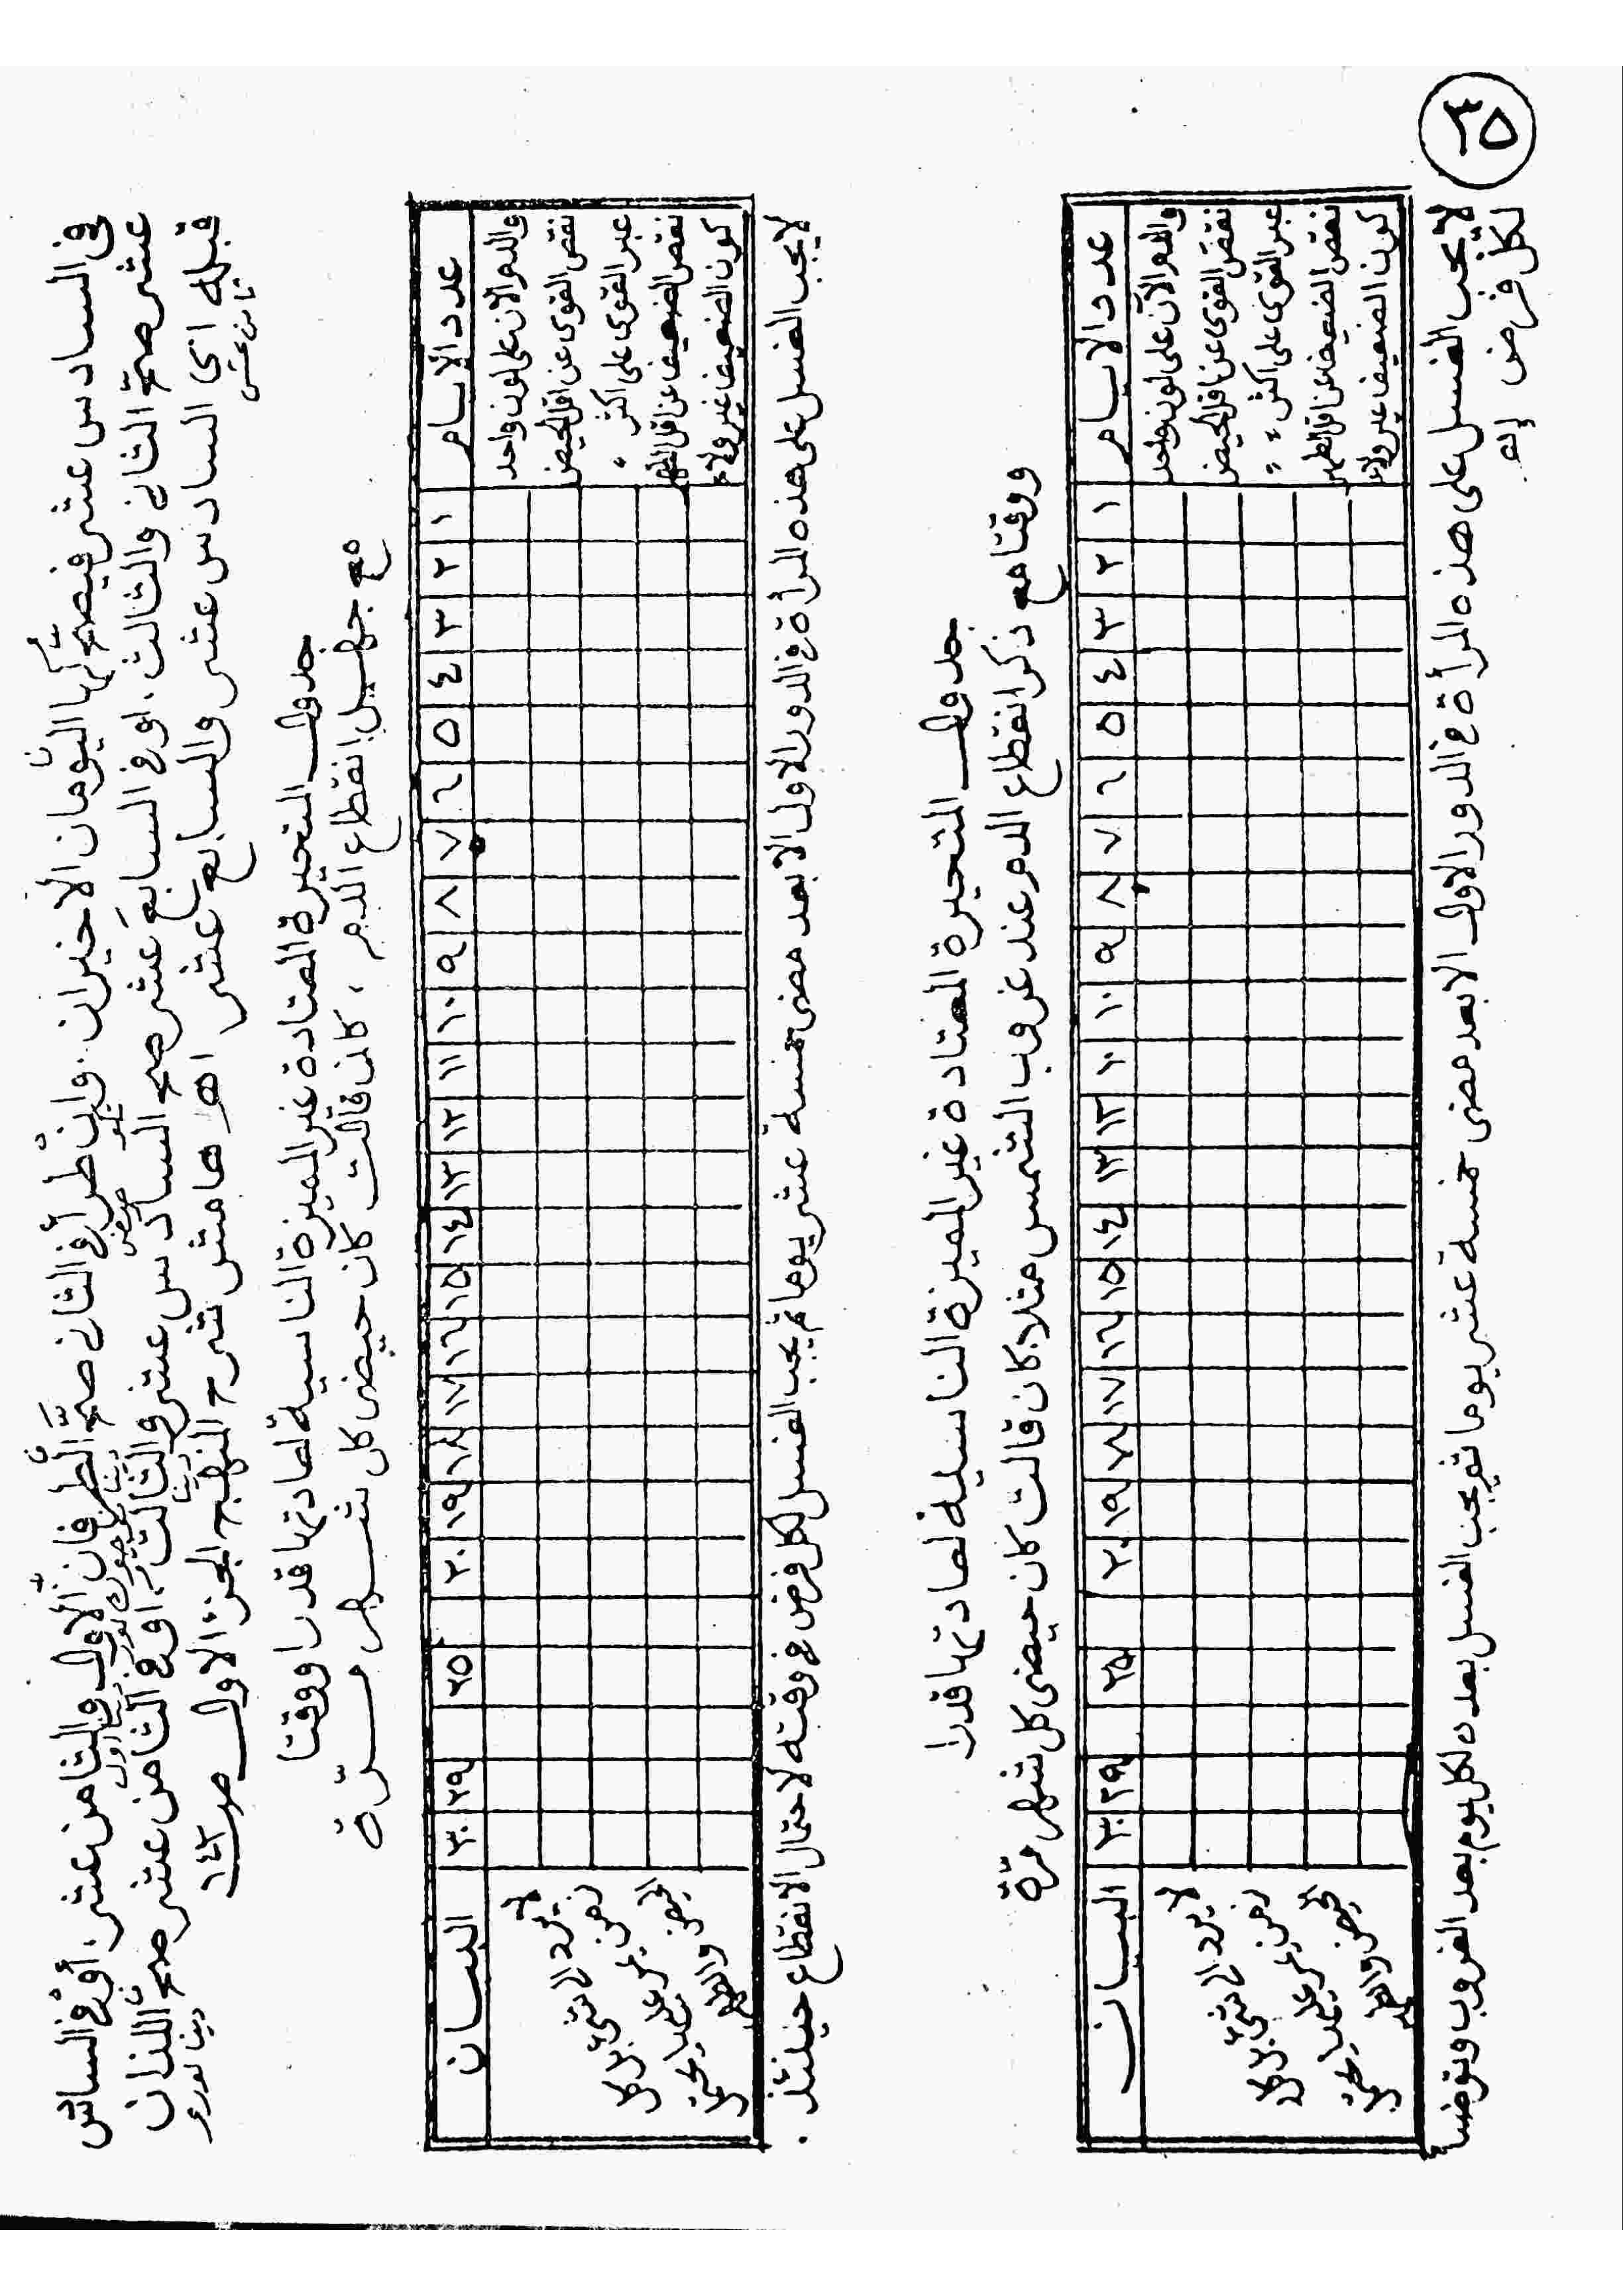 في السادس عشر فيصح لها اليومان الاخيران. وان طرأ في الثاني صح الطرفان الاول والثامن عشر. أو في السادس
عشر صح الثاني والثالث. او في السابع عشر صح السادس عشر والثالث او في الثامن عشر صح اللذان
قبله اي السادس عشر والسابع عشر اهـ هامش شرح المنهج الجزء الاول صـ ١٤٣
جدول المتحيرة المعتادة غير المميزة الناسية لعادتها قدرا ووقتا
مع جهل انقطاع الدم ، كان قالت كان حيضي كل شهر مرة
عدد الايام ١ ٢ ٣ ٤ ٥ ٦ ٧ ٨ ٩ ١٠ ١١ ١٢ ١٣ ١٤ ١٥ ١٦ ١٧ ١٨ ١٩ ٢٠ ٢٥ ٢٩ ٣٠ البيان
والدم الان على لون واحد
نقص القوي عن اقل الحيض
عبر القوي على اكثر "
نقص الضعيف عن اقل الطهر
كون الضعيف غير ولاء
لا يرد الى شيئ بل كل
زمن يمر عليها يحتمل
الحيض والطهر
لا يجب الغسل على هذه المرأة في الدور الاول الا بعد مضى خمسة عشر يوما ثم يجب الغسل لكل فرض في وقته لاحتمال الانقطاع حينئذ .
جدول المتحيرة المعتادة غير المميزة الناسية لعادتها قدرا
ووقتا مع ذكر انقطاع الدم عند غروب الشمس مثلا. كان قالت كان حيضى كل شهر مرة
عدد الايام ١ ٢ ٣ ٤ ٥ ٦ ٧ ٨ ٩ ١٠ ١٠ ١٣ ١٣ ١٤ ١٥ ١٦ ١٧ ١٨ ١٩ ٢٠ ٢٥ ٢٩ ٣٠ البيان
والدم الآن على لون واحد
نقص القوي عن اقل الحيض
عبر القوي على اكثر " "
نقص الضعيف عن اقل الطهر
كون الضعيف غير ولاء
لا يرد الى شيئ بل كل
زمن يمر عليها يحتمل
الحيض والطهر
لا يجب الغسل على هذه المرأة في الدور الاول الا بعد مضى خمسة عشر يوما ثم يجب الغسل بعده لكل يوم بعد الغروب وتتوضأ
لكل فرض إهـ
٣٥